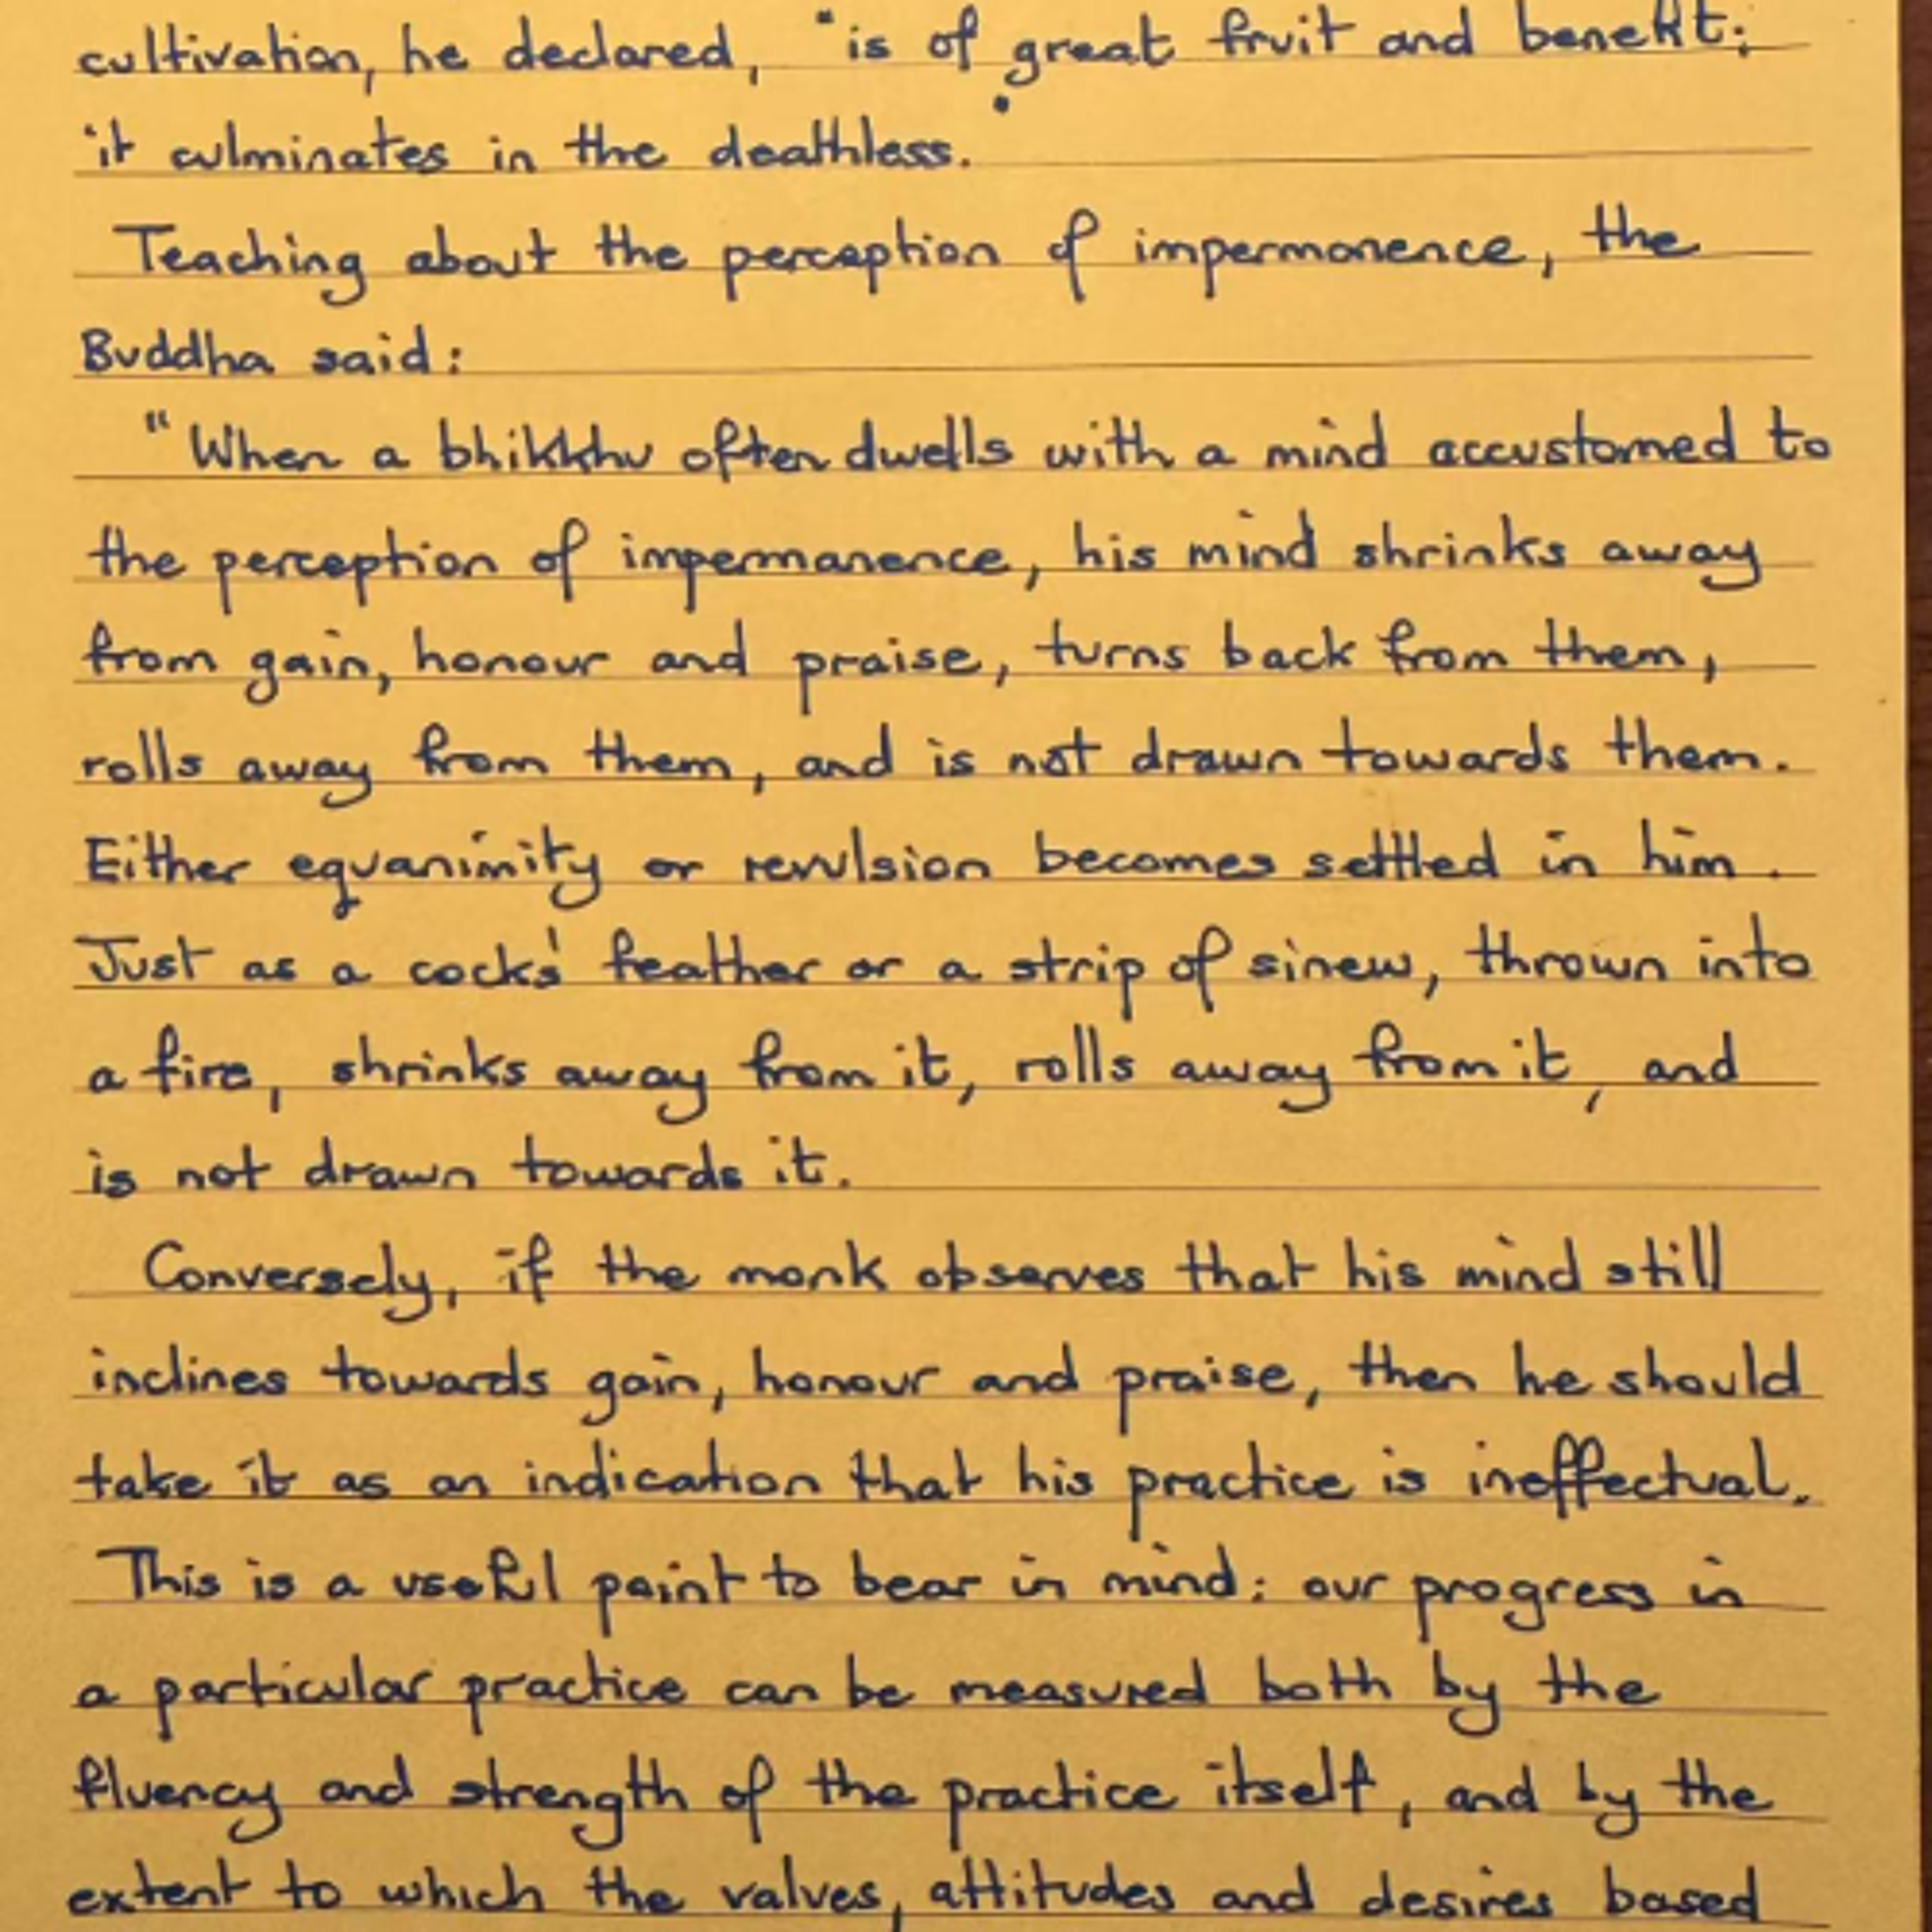 cultivation, he declared, "is of great fruit and benefit;
it culminates in the deathless."
Teaching about the perception of impermanence, the
Buddha said:
"When a bhikkhu often dwells with a mind accustomed to
the perception of impermanence, his mind shrinks away
from gain, honour and praise, turns back from them,
rolls away from them, and is not drawn towards them.
Either equanimity or revulsion becomes settled in him.
Just as a cocks' feather or a strip of sinew, thrown into
a fire, shrinks away from it, rolls away from it, and
is not drawn towards it.
Conversely, if the monk observes that his mind still
inclines towards gain, honour and praise, then he should
take it as an indication that his practice is ineffectual.
This is a useful point to bear in mind: our progress in
a particular practice can be measured both by the
fluency and strength of the practice itself, and by the
extent to which the values, attitudes and desires based